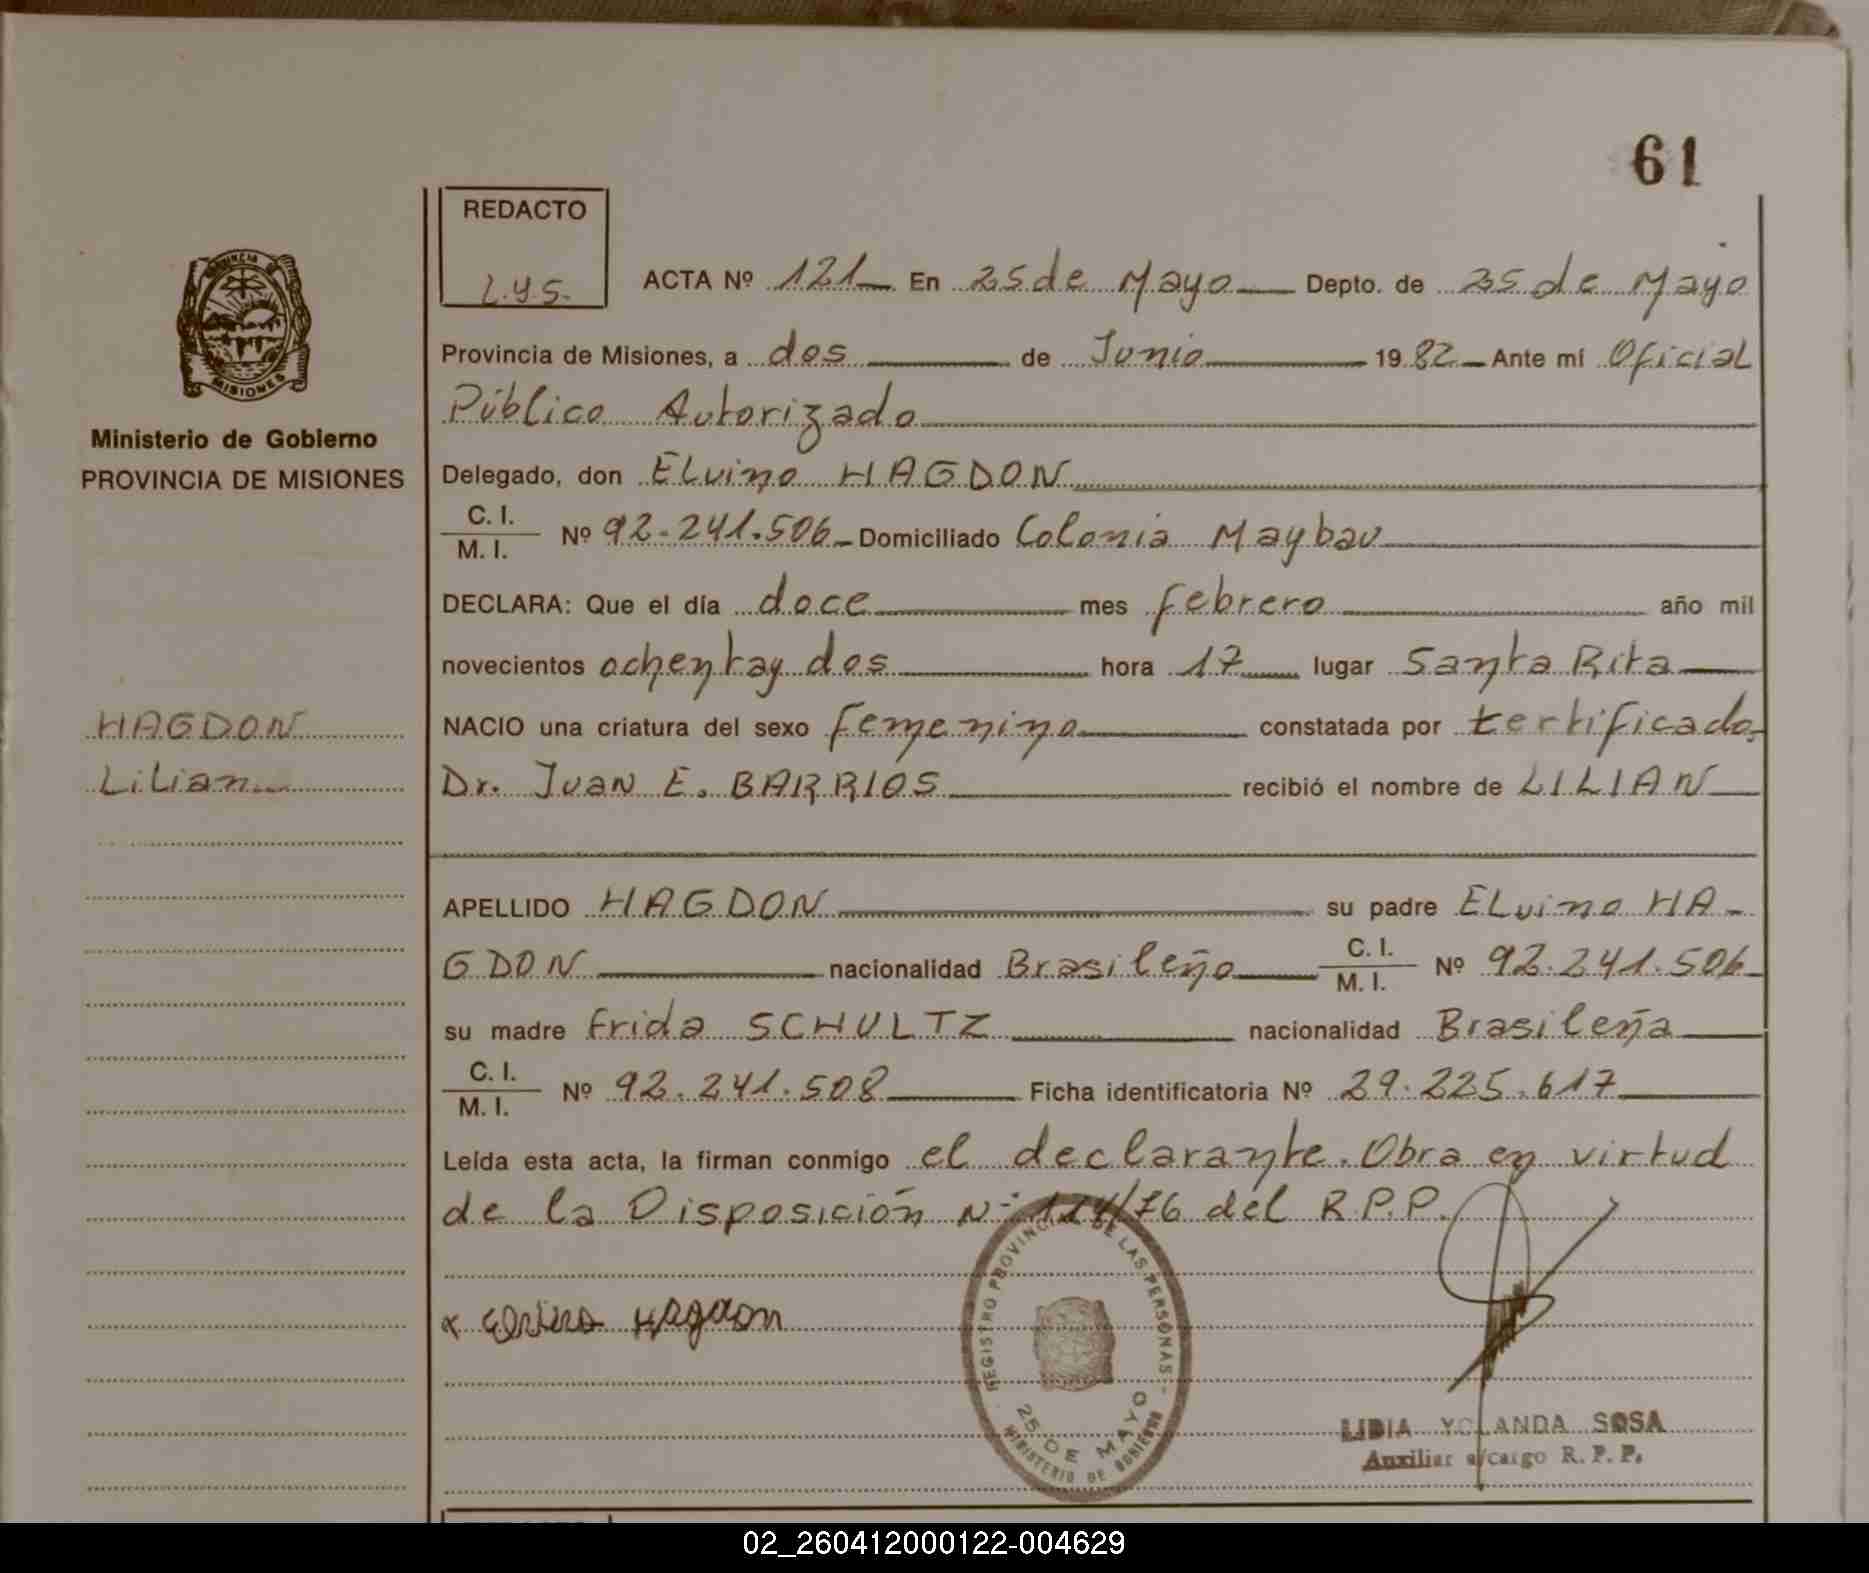 61
REDACTO
L.Y.S.
ACTA Nº 121 En 25 de Mayo Depto. de 25 de Mayo
Provincia de Misiones, a dos de Junio 1982 Ante mí Oficial
Público Autorizado
Delegado, don ELvino HAGDON
C. I.
M. I. Nº 92.241.506 Domiciliado Colonia Maybau
DECLARA: Que el día doce mes febrero año mil
novecientos ochentay dos hora 17 lugar Santa Rita
NACIO una criatura del sexo femenino constatada por certificado
Dr. Juan E. BARRIOS recibió el nombre de LILIAN
APELLIDO HAGDON su padre ELvino HA-
GDON nacionalidad Brasileño C. I.
M. I. Nº 92.241.506
su madre Frida SCHULTZ nacionalidad Brasileña
C. I.
M. I. Nº 92.241.508 Ficha identificatoria Nº 29.225.617
Leída esta acta, la firman conmigo el declarante. Obra en virtud
de la Disposición Nº 114/76 del R.P.P.
x Elvino Hagdon
REGISTRO PROVINCIAL DE LAS PERSONAS
25 DE MAYO
MINISTERIO DE GOBIERNO
LIDIA YOLANDA SOSA
Auxiliar a/cargo R. P. P.
PROVINCIA DE
MISIONES
Ministerio de Gobierno
PROVINCIA DE MISIONES
HAGDON
Lilian
02_260412000122-004629